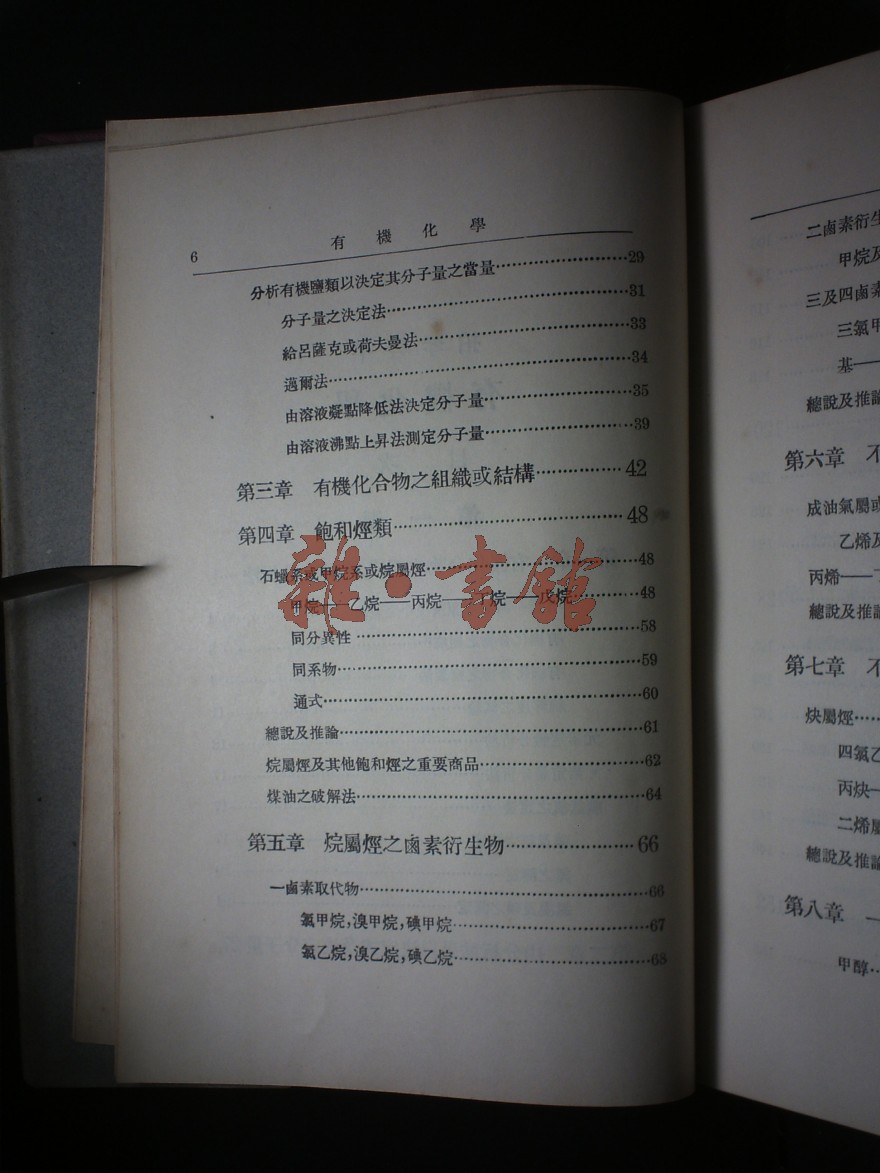 6
有機化學
分析有機鹽類以決定其分子量之當量……29
分子量之決定法……31
給呂薩克或荷夫曼法……33
邁爾法……34
由溶液凝點降低法決定分子量……35
由溶液沸點上昇法測定分子量……39
第三章 有機化合物之組織或結構……42
第四章 飽和烴類……48
石蠟系或甲烷系或烷屬烴……48
甲烷——乙烷——丙烷——丁烷——戊烷……48
同分異性……58
同系物……59
通式……60
總說及推論……61
烷屬烴及其他飽和烴之重要商品……62
煤油之破解法……64
第五章 烷屬烴之鹵素衍生物……66
一鹵素取代物……66
氯甲烷,溴甲烷,碘甲烷……67
氯乙烷,溴乙烷,碘乙烷……68
雜·書館
二鹵素衍生
甲烷及
三及四鹵素
三氯甲
基——
總說及推論
第六章 不
成油氣屬或
乙烯及
丙烯——丁
總說及推論
第七章 不
炔屬烴……
四氯乙
丙炔—
二烯屬
總說及推論
第八章 一
甲醇…